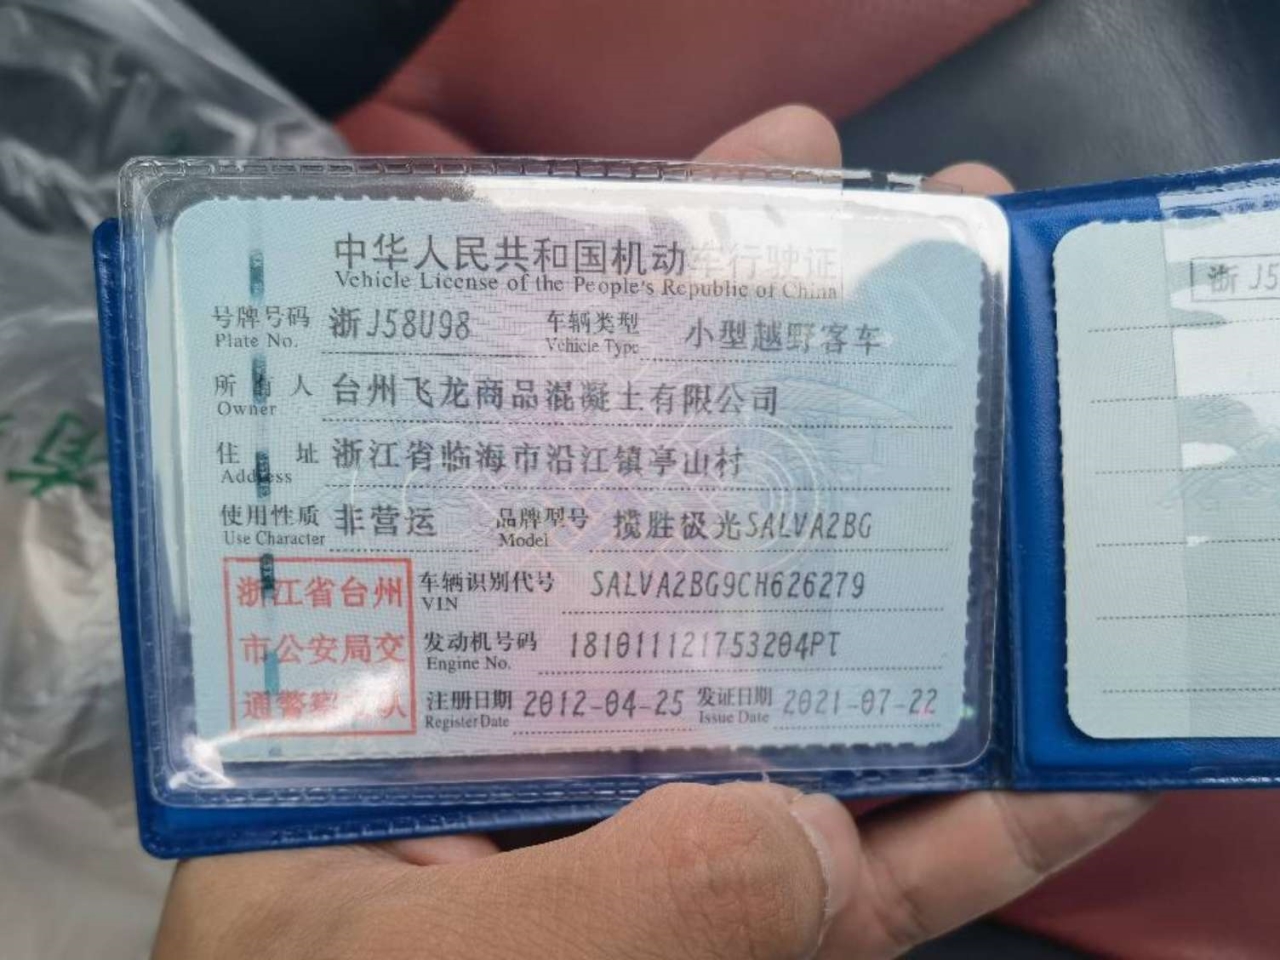 中华人民共和国机动车行驶证
Vehicle License of the People's Republic of China
号牌号码 浙J58U98 车辆类型 小型越野客车
Plate No. Vehicle Type
所有人 台州飞龙商品混凝土有限公司
Owner
住址 浙江省临海市沿江镇亭山村
Address
使用性质 非营运 品牌型号 揽胜极光SALVA2BG
Use Character Model
浙江省台州
市公安局交
通警察支队
车辆识别代号 SALVA2BG9CH626279
VIN
发动机号码 181011121753204PT
Engine No.
注册日期 2012-04-25 发证日期 2021-07-22
Register Date Issue Date
浙J5